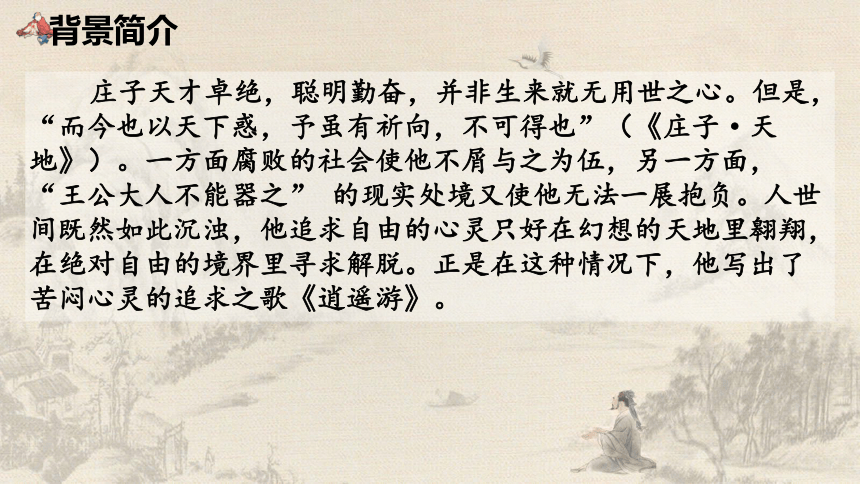 背景简介
庄子天才卓绝，聪明勤奋，并非生来就无用世之心。但是，
“而今也以天下惑，予虽有祈向，不可得也”（《庄子·天
地》）。一方面腐败的社会使他不屑与之为伍，另一方面，
“王公大人不能器之” 的现实处境又使他无法一展抱负。人世
间既然如此沉浊，他追求自由的心灵只好在幻想的天地里翱翔，
在绝对自由的境界里寻求解脱。正是在这种情况下，他写出了
苦闷心灵的追求之歌《逍遥游》。